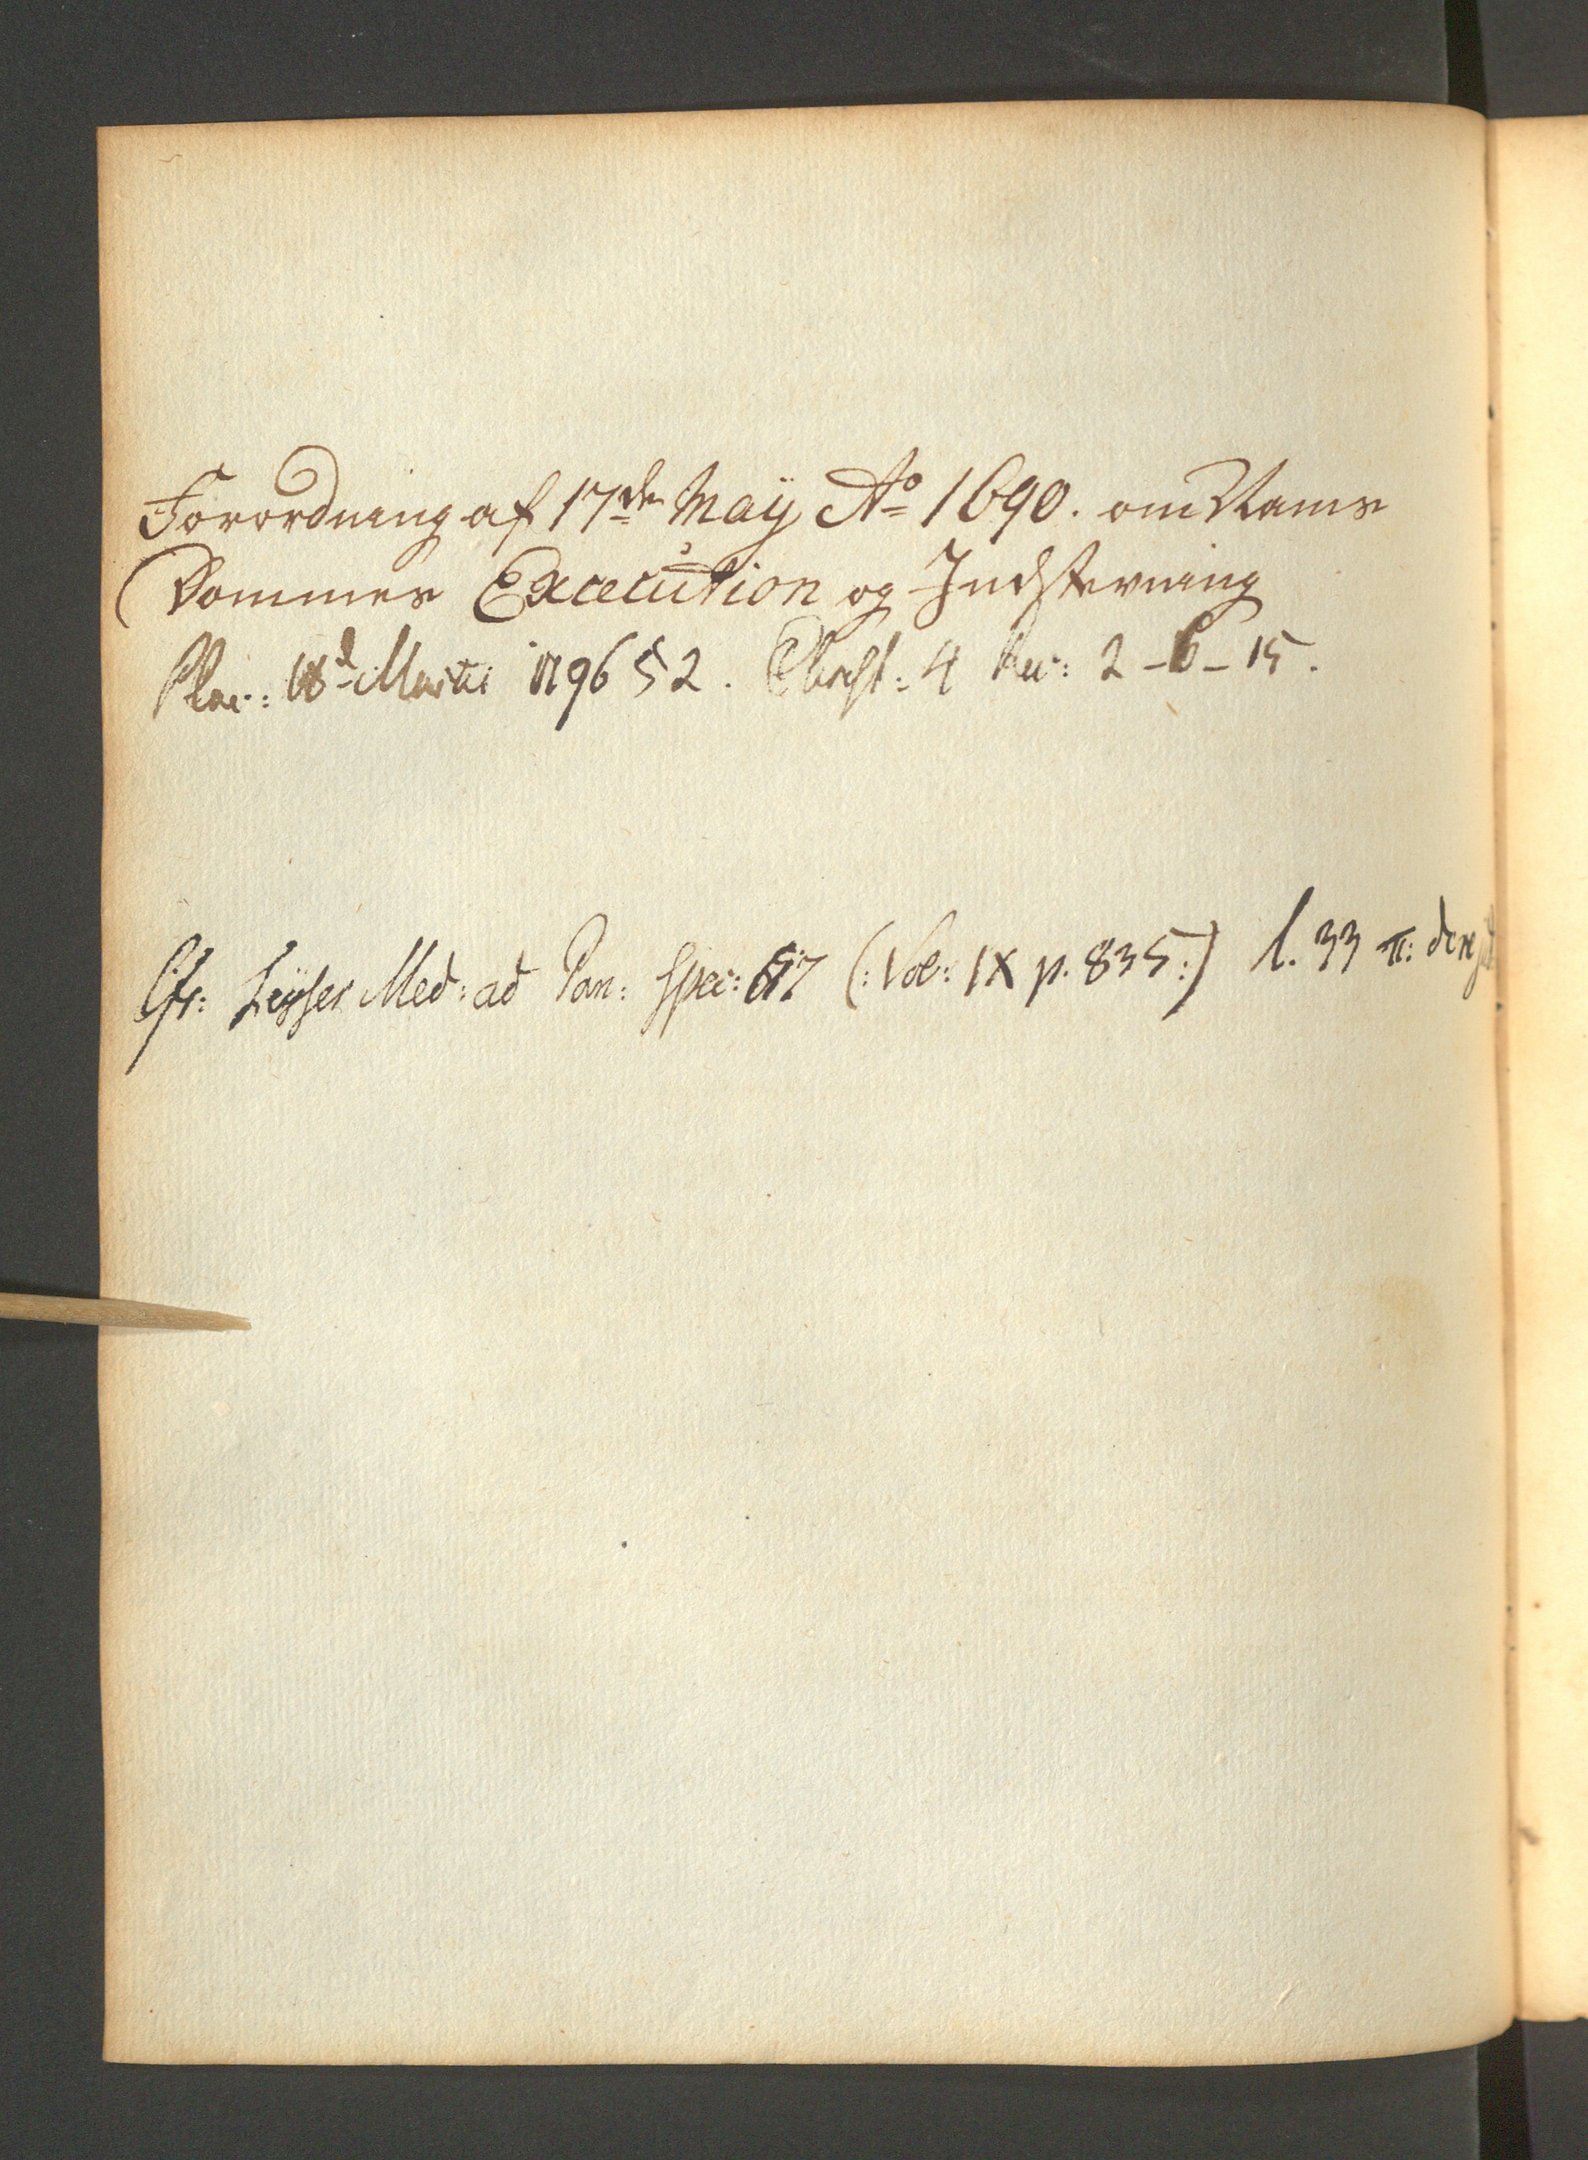 Forordning af 17de Maÿ Ao 1690. om Nams
Dommes Execution og Indstevning
Plac: 18d Martii 1796 § 2. 4 2-6-15.
Cfr: Leÿser Med: ad Pan: Spec: 617 (: Vol: IX p. 835 :) l. 33 π: de re jud